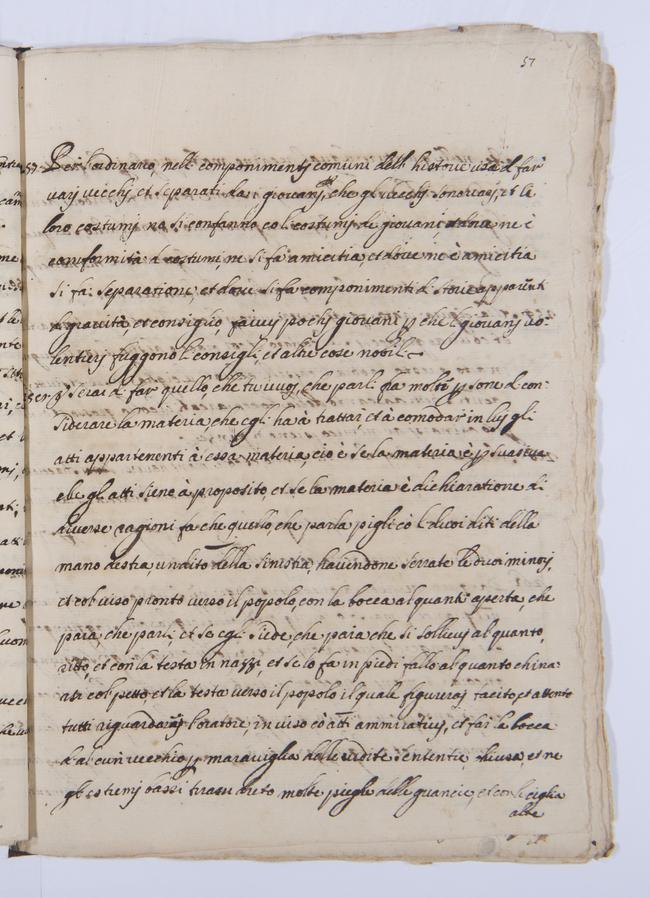 57
57. Per l'ordinario, nelli componimenti comuni dell' historie usa di far
varij vecchj, et separati da i giovanj, che gli vecchj sono rarj, et li
loro costumj nõ si confanno co li costumj de giovani, et dove nõ è
conformità di costumi, nõ si fa amicitia, et dove nõ è amicitia
si fa separatione, et dove si fa componimenti di storie apparenti
di gravità, et consiglio, faivvj pochj giovani, p che li giovanj vo-
lentierj fuggono li consigli, et altre cose nobili.
Userai di far quello, che tu vuoj, che parli fra molte psone di con-
siderare la materia, che egli ha à trattar, et à comodar in luj gli
atti appartenenti à essa materia, cio è se la materia è psuasiva
che gli atti sieno à proposito, et se la materia è dichiaratione di
diverse ragioni fa che quello, che parla piglj cõ li duoi diti della
mano destra, un dito della sinistra, havendone serrate le duoi minorj,
et col viso pronto verso il popolo, con la bocca alquanto aperta, che
paia, che parli, et se egli siede, che paia che si sollevj alquanto,
ritto, et con la testa innazzi, et se lo fa in piedi fallo alquanto china-
rsi col petto et la testa verso il popolo il quale figureraj tacito, et attento
tutti riguardarsj l'oratore, in viso cõ atti ammirativj, et far la bocca
d'alcun vecchio p maraviglia delle udite sententie chiusa, et ne
gli estremj bassi tirarsi dietro molte pieghe delle guancie, et con le ciglia
alte